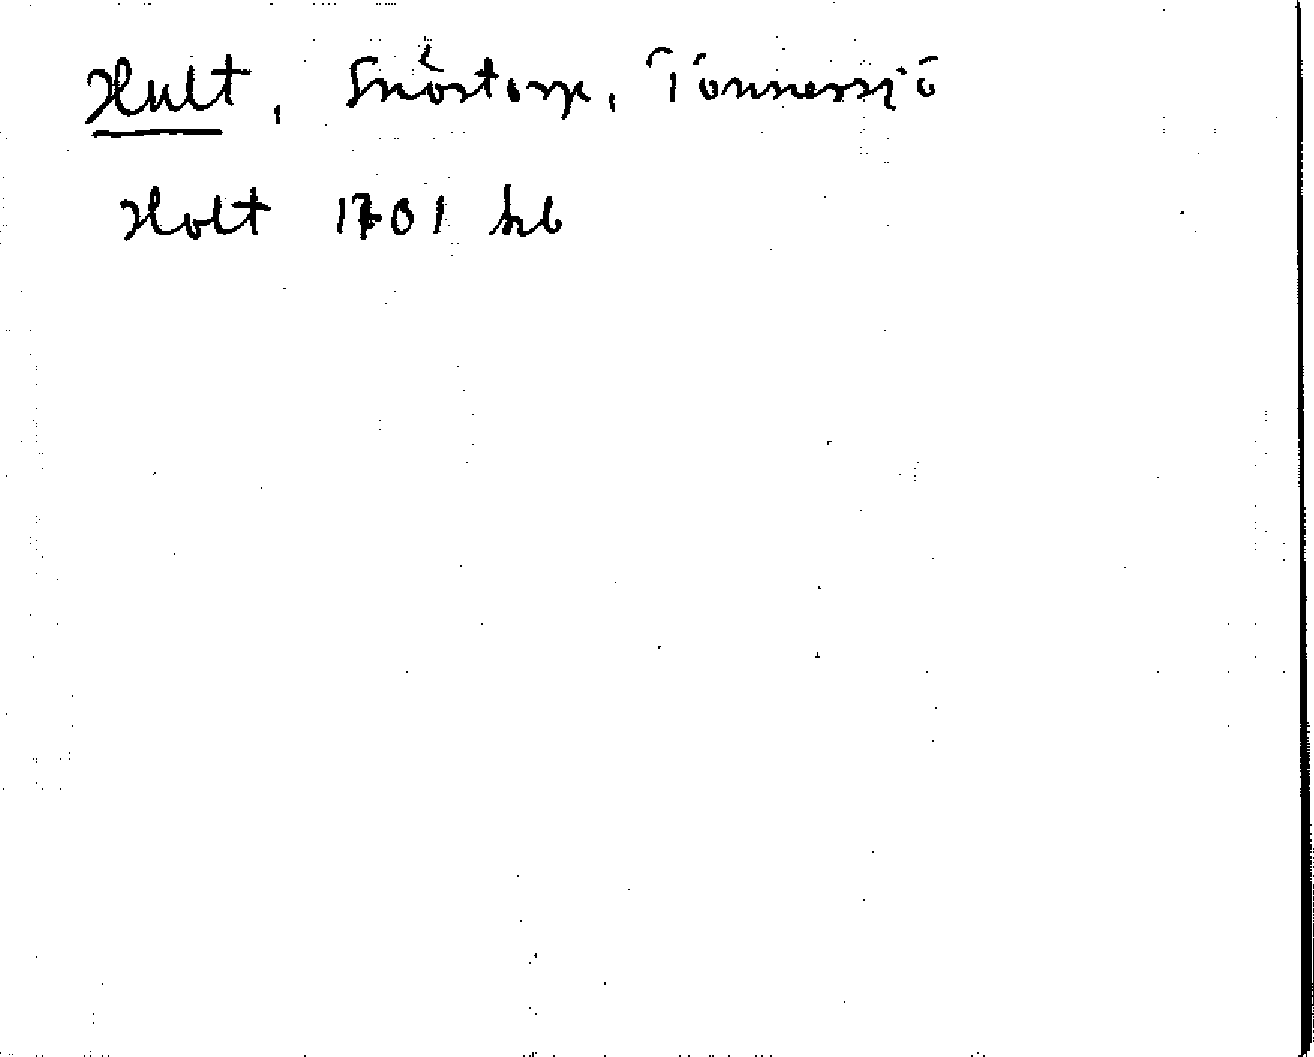 Hult, Snöstorp, Tönnersjö
Holt 1701 kb